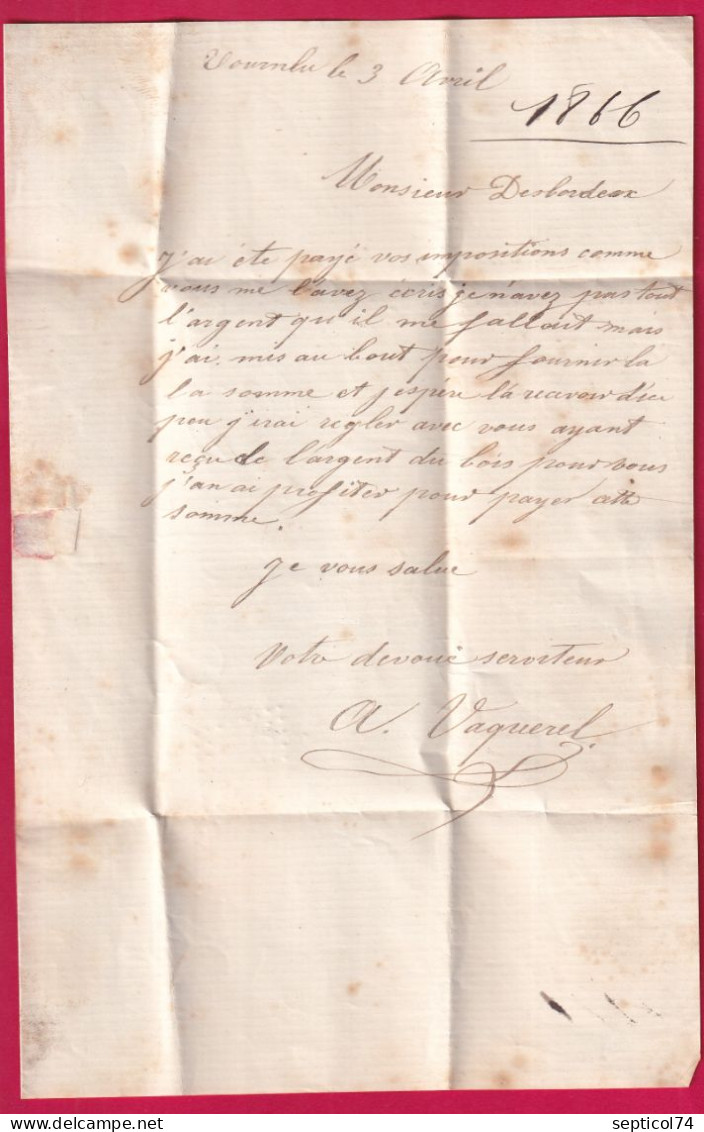 le 3 Avril
1866
Monsieur Desbordeax
J'ai été payé vos impositions comme
vous me l'avez écris je n'avez pas tout
l'argent qu'il me fallait mais
j'ai mis au bout pour fournir la
la somme et j'espère la recevoir d'ici
peu j'irai regler avec vous ayant
reçu de l'argent du bois pour vous
j'an ai profiter pour payer
somme.
Je vous salue
Votre devoué serviteur
A. Vaquerel
septicol74